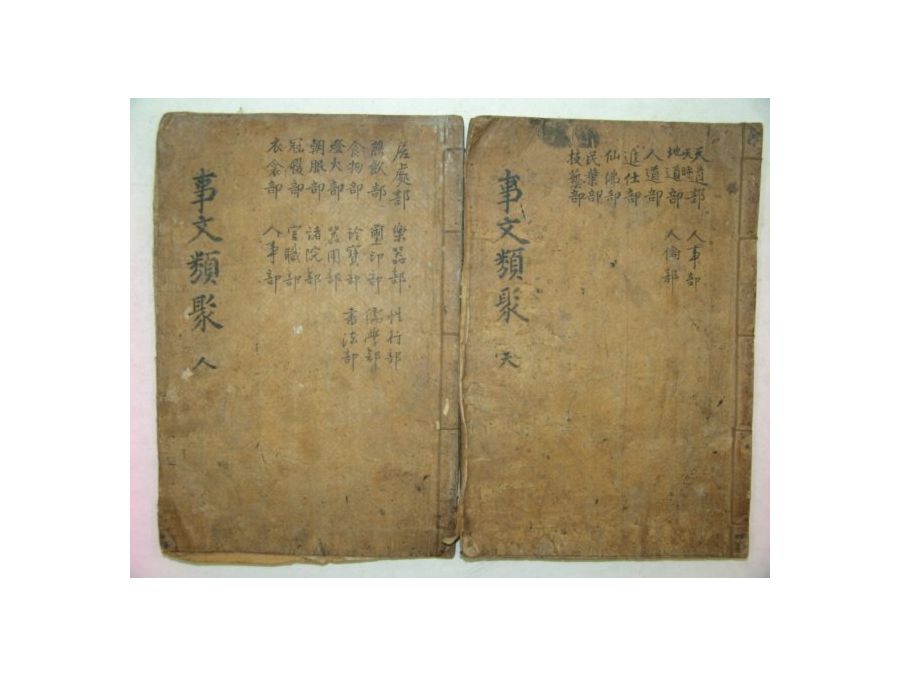 天道部
天時部
地道部
人道部
進仕部
仙佛部
民業部
技藝部
人事部
人倫部
事文類聚
天
居處部
燕飲部
食物部
燈火部
朝服部
冠履部
衣衾部
樂器部
璽印部
珍寶部
器用部
諸院部
官職部
人事部
性行部
儒學部
書法部
事文類聚
人